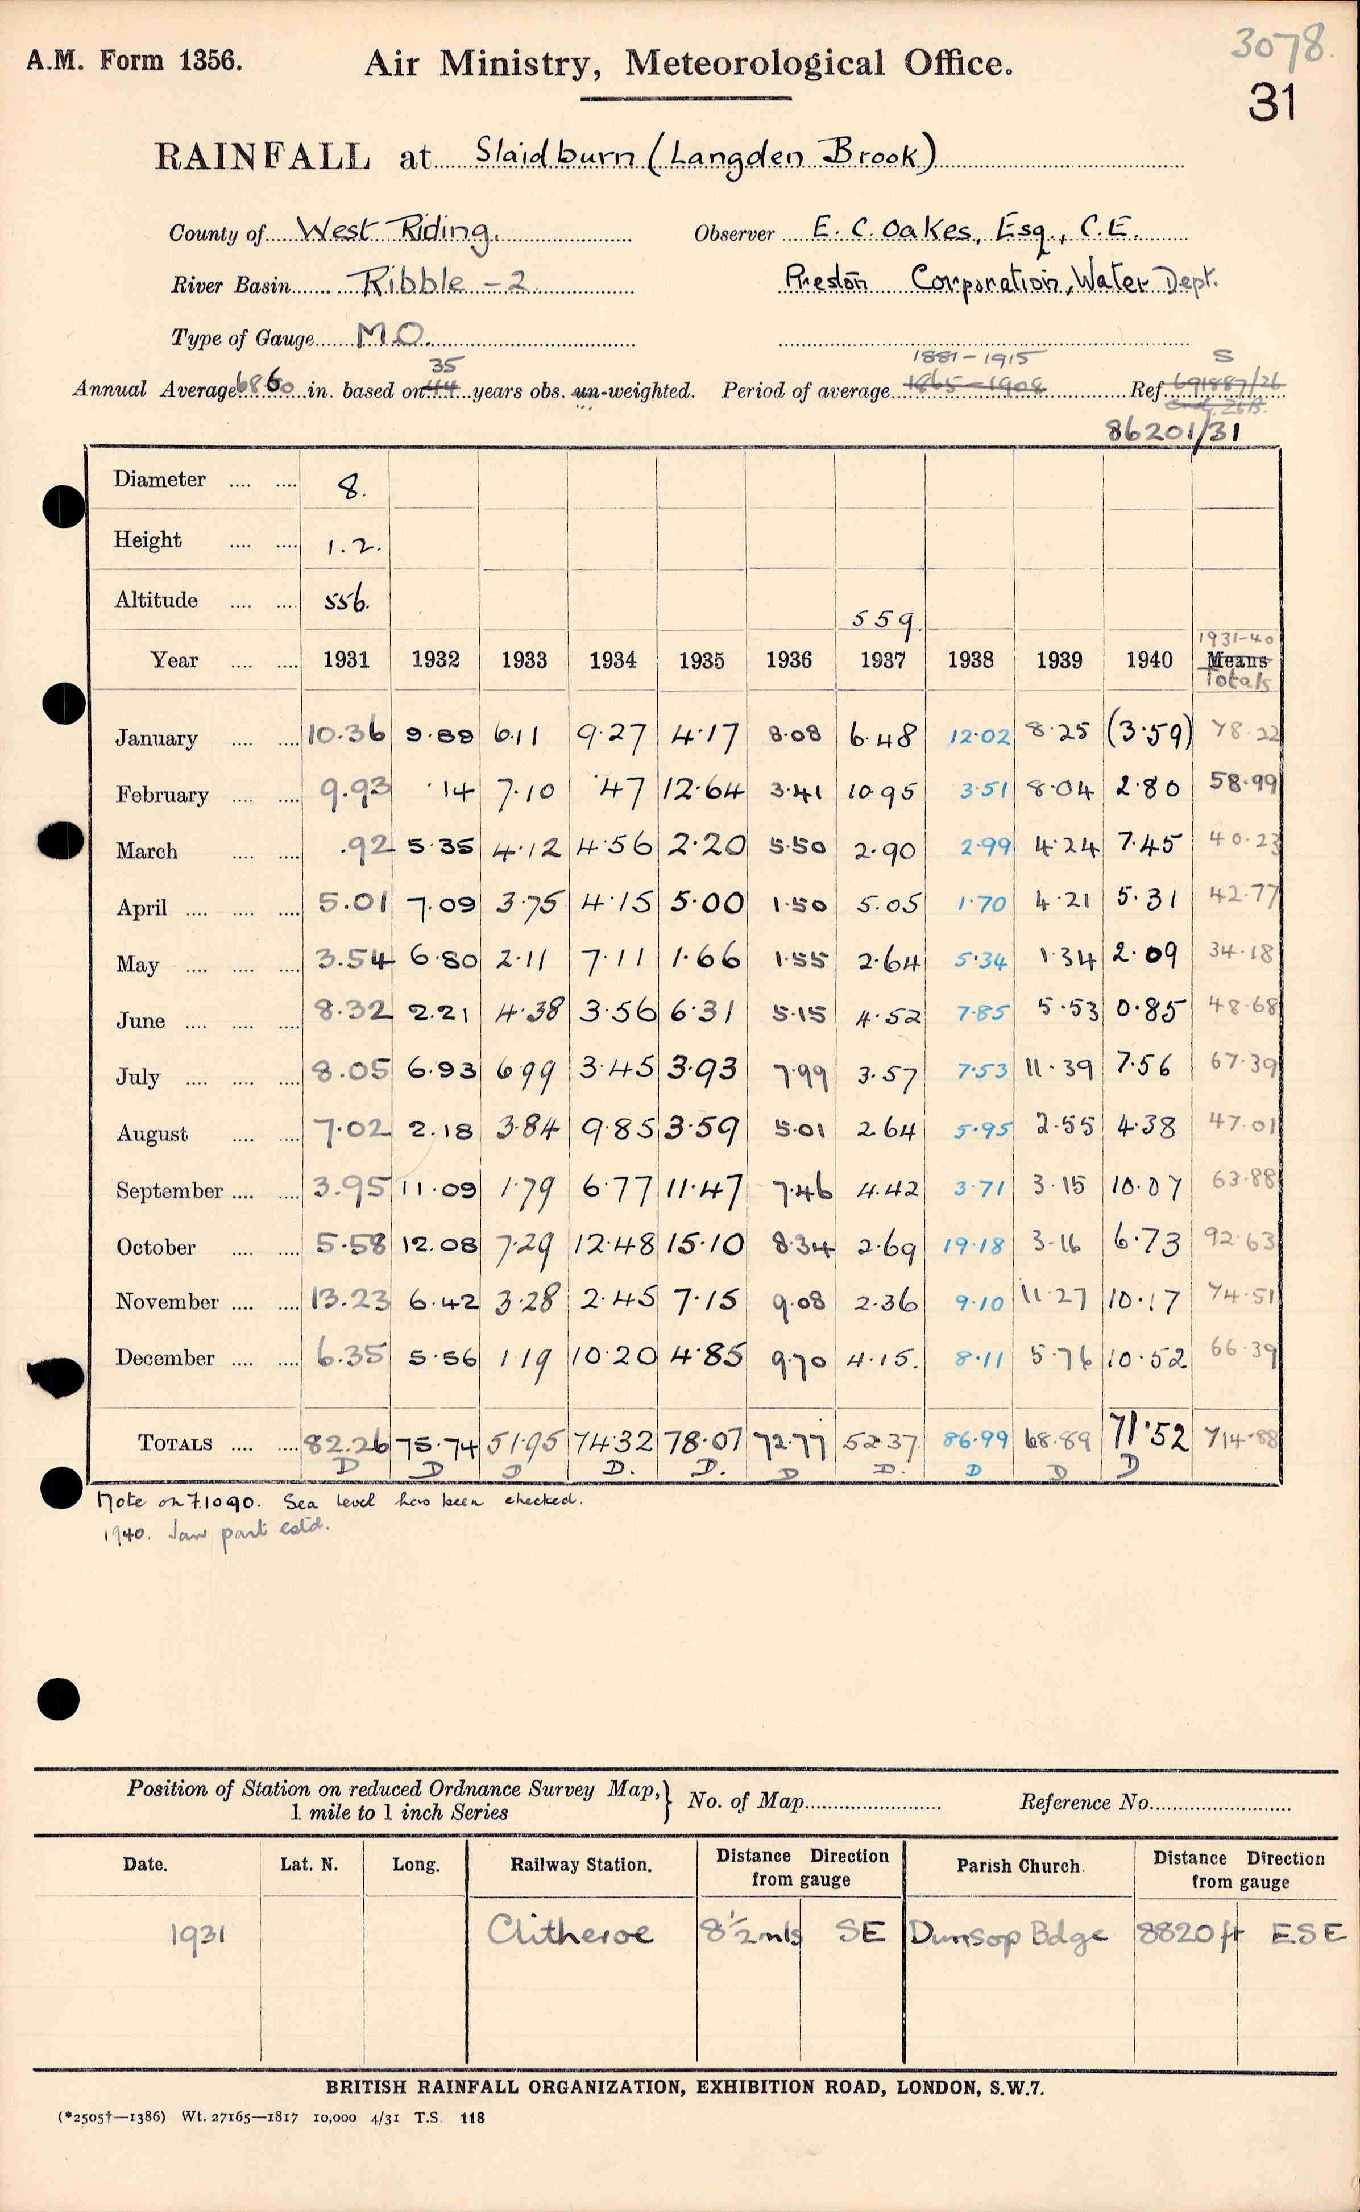 3078.
A.M. Form 1356. Air Ministry, Meteorological Office.
31
RAINFALL at Slaidburn (Langden Brook)
County of West Riding. Observer E. C. Oakes, Esq., C.E.
River Basin Ribble - 2 Preston Corporation, Water Dept.
Type of Gauge M.O.
35 1881-1915 S
Annual Average 68.60 in. based on 44 years obs. un-weighted. Period of average 1865-1908 Ref. 691887/26
86201/31
Diameter .... .... 8.
Height .... .... 1.2.
Altitude .... .... 556. 559.
1931-40
Year .... .... 1931 1932 1933 1934 1935 1936 1937 1938 1939 1940 Means
Totals
January .... .... 10.36 9.89 6.11 9.27 4.17 8.08 6.48 12.02 8.25 (3.59) 78.22
February .... .... 9.93 .14 7.10 .47 12.64 3.41 10.95 3.51 8.04 2.80 58.99
March .... .... .92 5.35 4.12 4.56 2.20 5.50 2.90 2.99 4.24 7.45 40.23
April .... .... .... 5.01 7.09 3.75 4.15 5.00 1.50 5.05 1.70 4.21 5.31 42.77
May .... .... .... 3.54 6.80 2.11 7.11 1.66 1.55 2.64 5.34 1.34 2.09 34.18
June .... .... .... 8.32 2.21 4.38 3.56 6.31 5.15 4.52 7.85 5.53 0.85 48.68
July .... .... .... 8.05 6.93 6.99 3.45 3.93 7.99 3.57 7.53 11.39 7.56 67.39
August .... .... 7.02 2.18 3.84 9.85 3.59 5.01 2.64 5.95 2.55 4.38 47.01
September .... .... 3.95 11.09 1.79 6.77 11.47 7.46 4.42 3.71 3.15 10.07 63.88
October .... .... 5.58 12.08 7.29 12.48 15.10 8.34 2.69 19.18 3.16 6.73 92.63
November .... .... 13.23 6.42 3.28 2.45 7.15 9.08 2.36 9.10 11.27 10.17 74.51
December .... .... 6.35 5.56 1.19 10.20 4.85 9.70 4.15. 8.11 5.76 10.52 66.39
TOTALS .... .... 82.26 75.74 51.95 74.32 78.07 72.77 52.37 86.99 68.89 71.52 714.88
D D D D. D. D D. D D D
Note on 7.10.90. Sea level has been checked.
1940. Jan part estd.
Position of Station on reduced Ordnance Survey Map,} No. of Map Reference No.
1 mile to 1 inch Series
Date. Lat. N. Long. Railway Station. Distance Direction from gauge Parish Church. Distance Direction from gauge
1931 Clitheroe 8½mls SE Dunsop Bdge 8820 ft ESE
BRITISH RAINFALL ORGANIZATION, EXHIBITION ROAD, LONDON, S.W.7.
(*2505†—1386) Wt. 27165—1817 10,000 4/31 T.S. 118